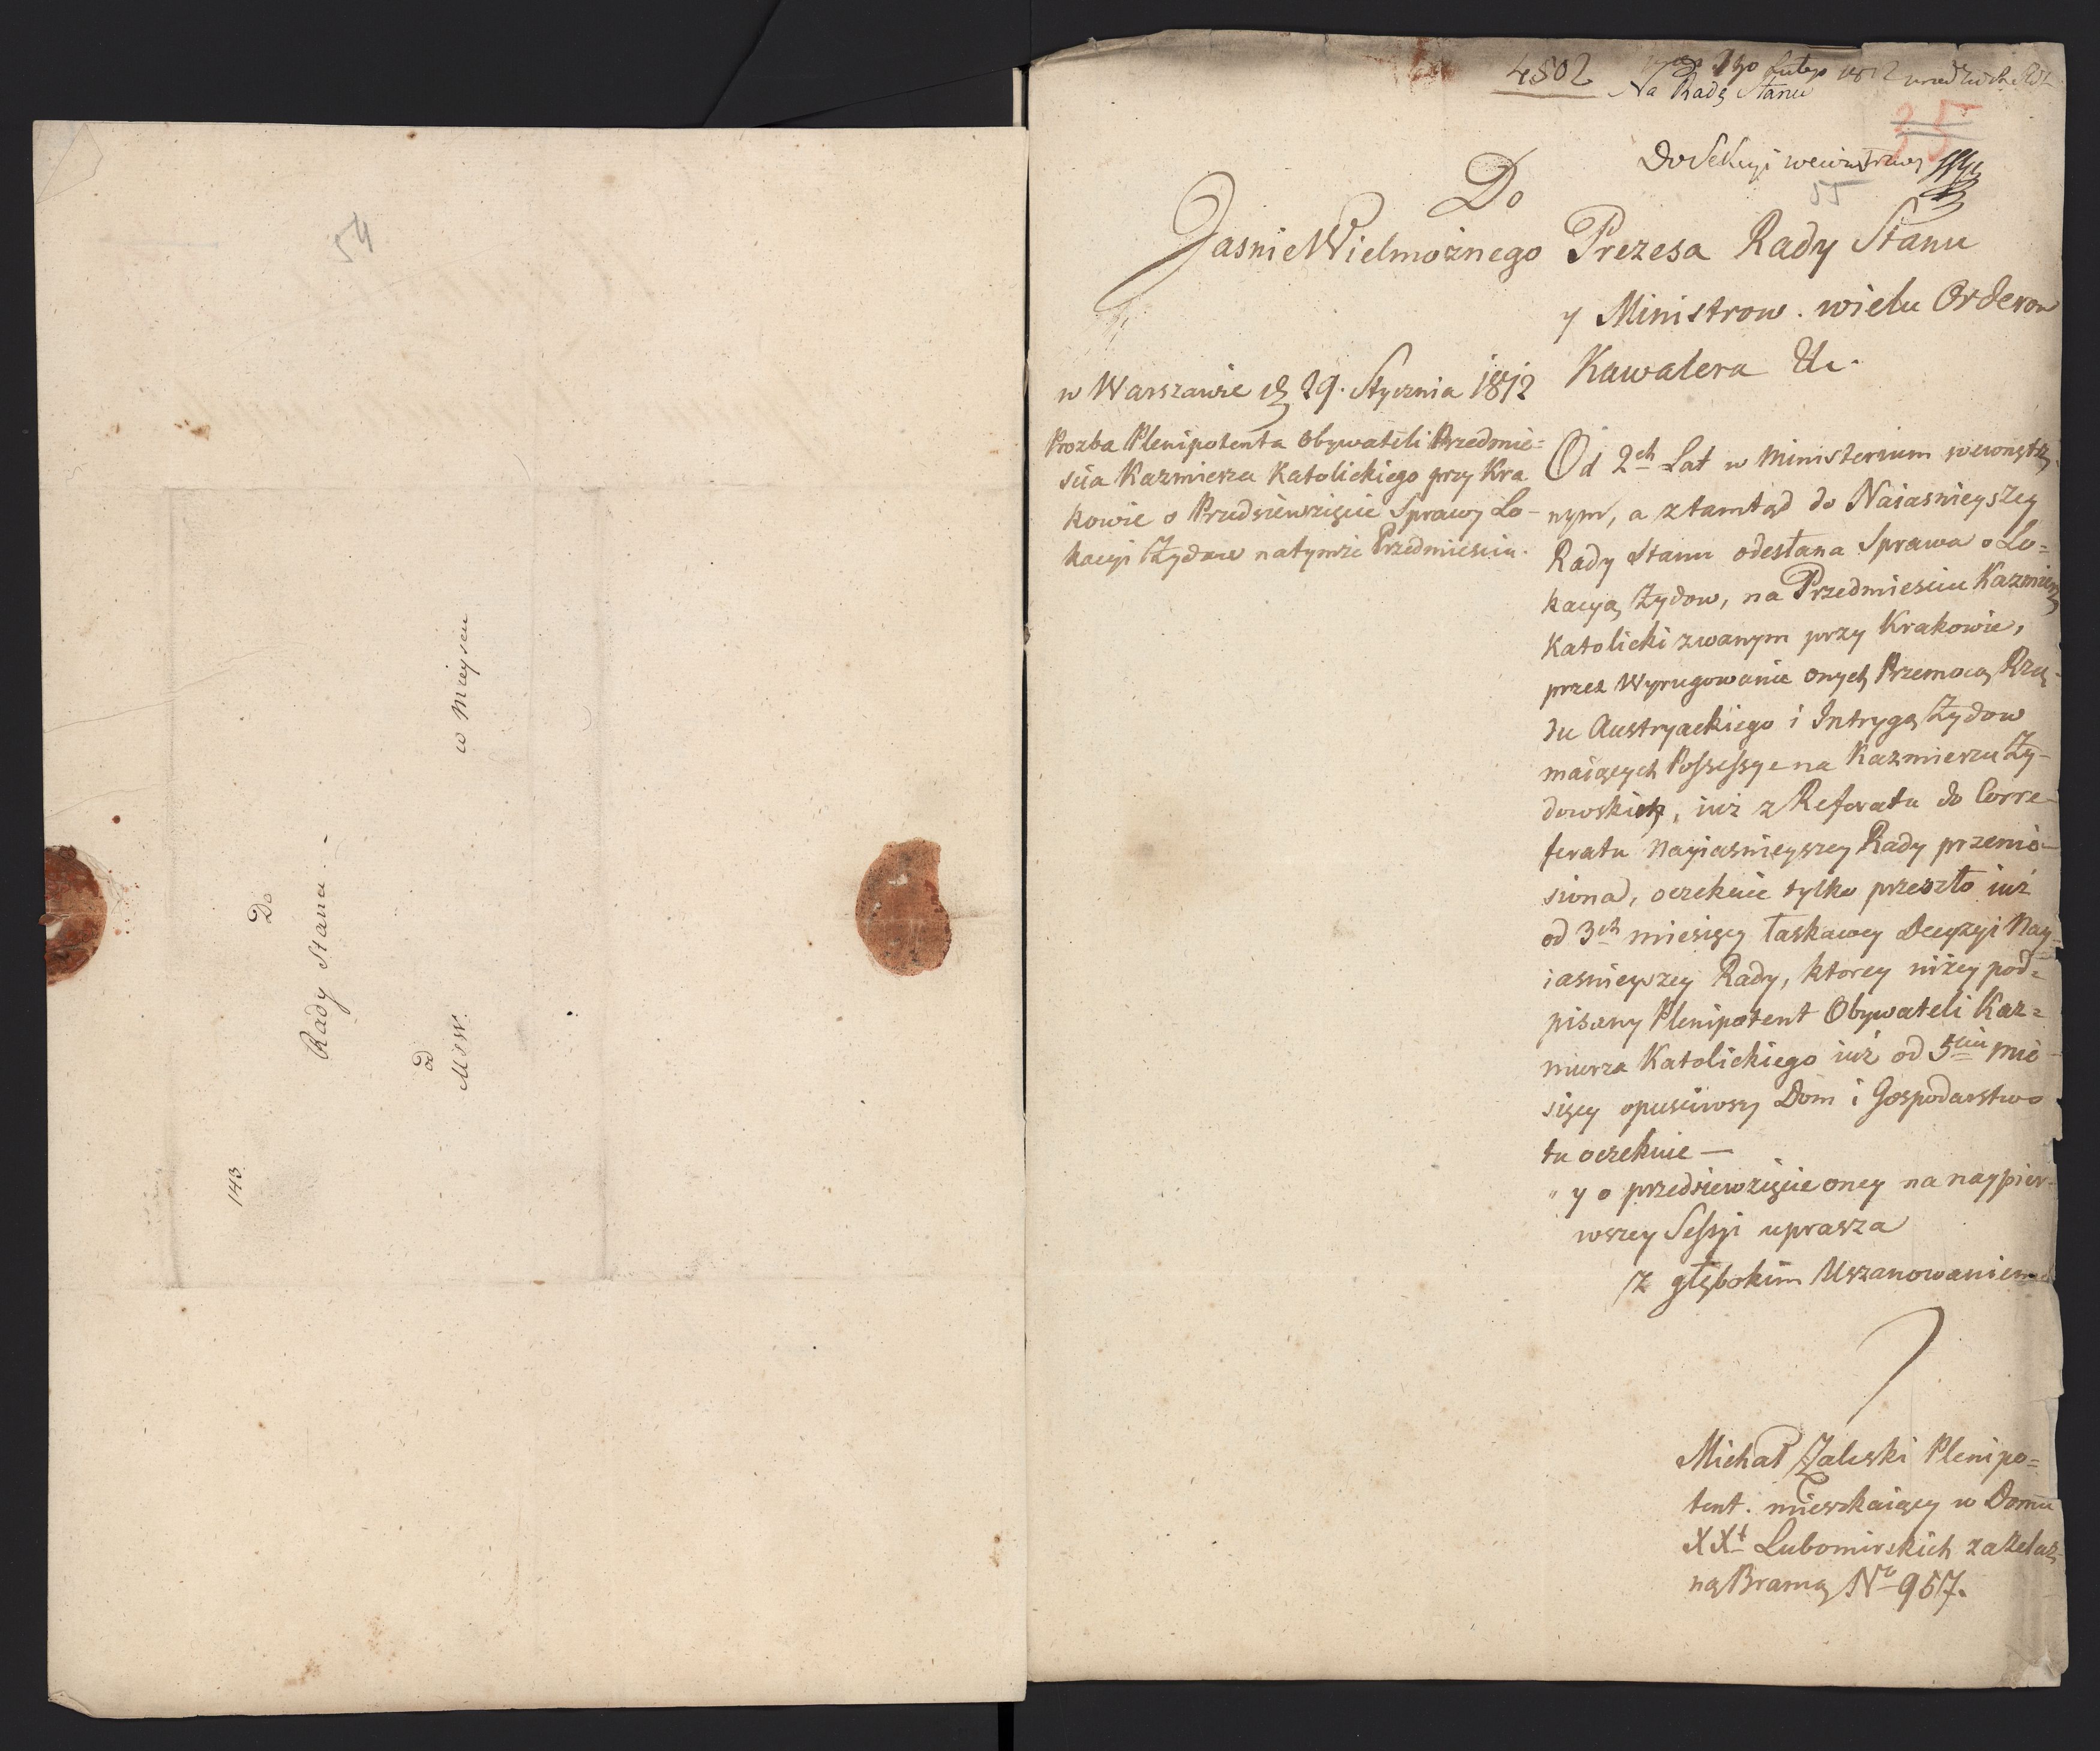 54
143
Do
Rady Stanu.
od
MSW.
w Mieyscu
4802
Lutego 1812
Na Radę Stanu
25
Do Sekcyi wewnętrzney
55
Do
JaśnieWielmożnego Prezesa Rady Stanu
y Ministrow. wielu Orderow
Kawalera &c.
w Warszawie d. 29. Stycznia 1812
Prozba Plenipotenta Obywateli Przedmie=
scia Kazmierza Katolickiego przy Kra
kowie o Przedsiewzięcie Sprawy Lo-
kacyi Żydow natymże Przedmiesciu.
Od 2ch Lat w Ministerium wewnętrz
nym, a ztamtąd do Naiasnieyszey
Rady Stanu odesłana Sprawa o Lo=
kacyą Żydow, na Przedmiesciu Kazmierz
Katolicki zwanym przy Krakowie,
przez Wyrugowanie onych Przemocą Rzą-
du Austryackiego i Intrygą Żydow
maiących Possessye na Kazmierzu Ży-
dowskich, iuż z Referatu do Corre-
feratu Nayiasnieyszey Rady przenie-
siona, oczekuie tylko przeszło iuż
od 3ch miesięcy łaskawey Decyzyi Nay-
iasnieyszey Rady, ktorey niżey pod=
pisany Plenipotent Obywateli Kaz=
mierza Katolickiego iuż od 5ciu mie-
sięcy opusciwszy Dom i Gospodarstwo
tu oczekuie —
" y o przedsiewzięcie oney na naypier-
wszey Sessyi uprasza
z głębokim Uszanowaniem
Michał Zaleski Plenipo=
tent. mieszkaiący w Domu
XXt Lubomirskich za Żelaz
ną Bramą No 957.